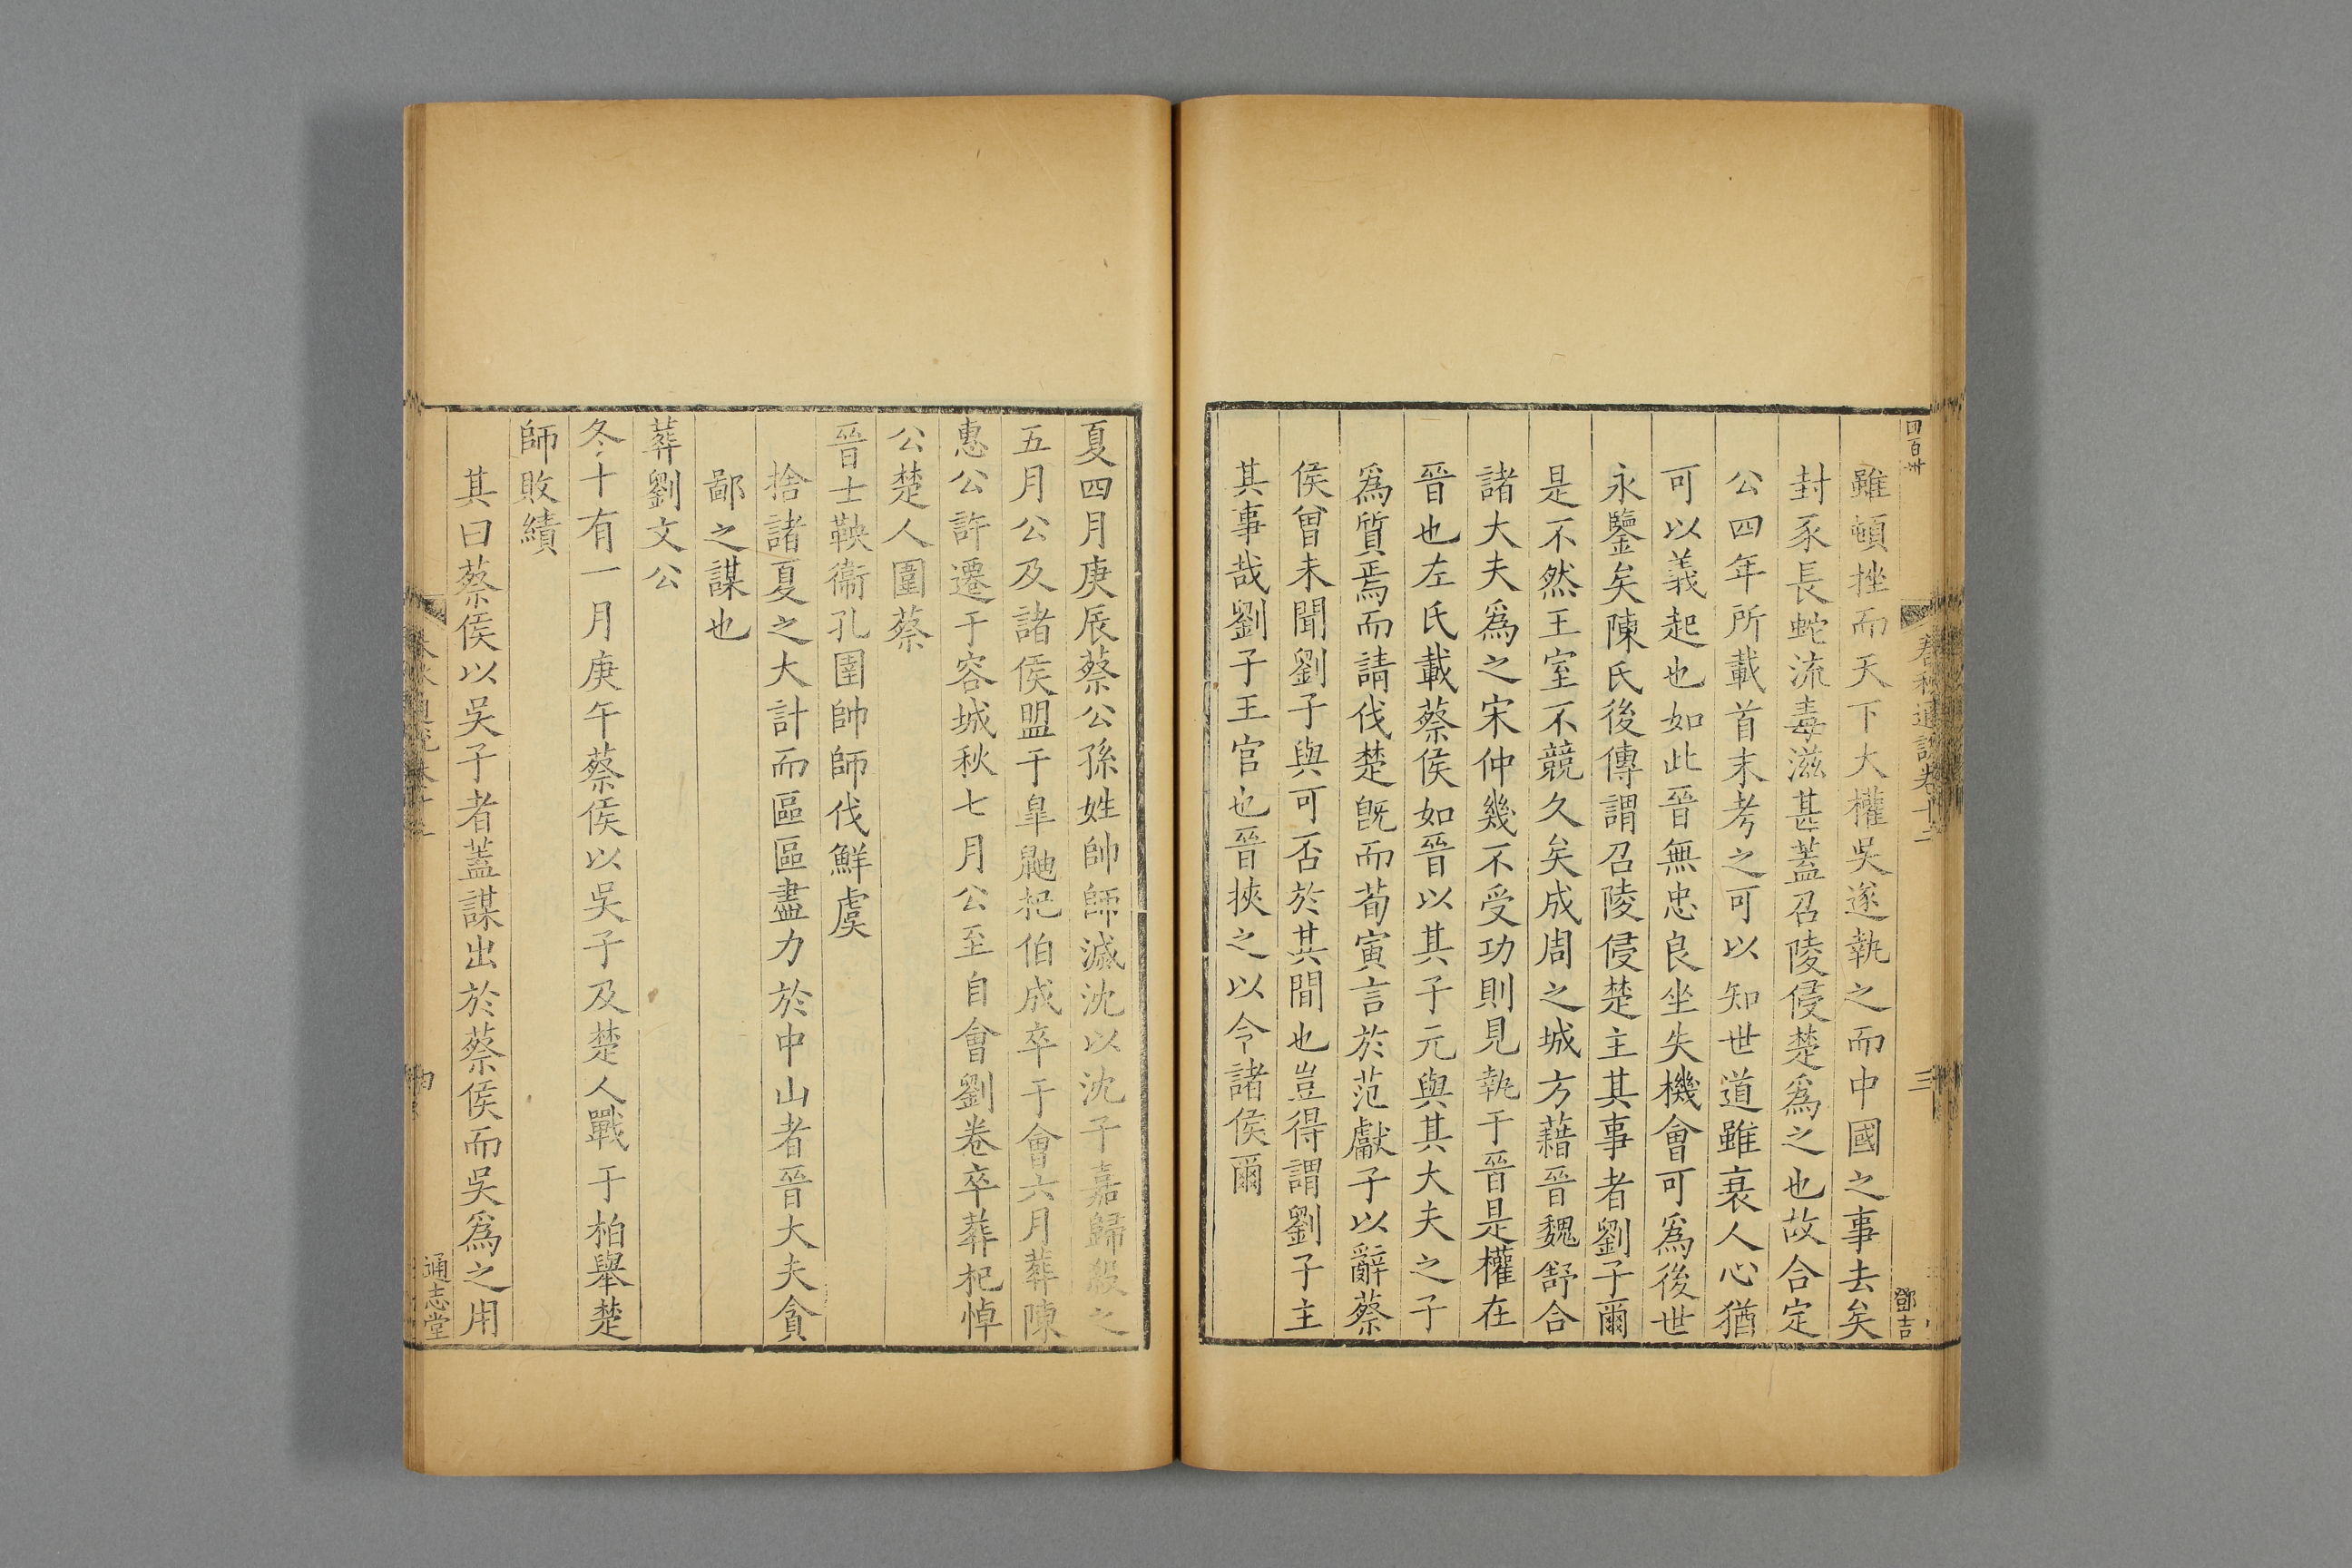 四百卅
春秋通說卷十二
三
鄧吉
雖頓挫而天下大權吳遂執之而中國之事去矣
封豕長蛇流毒滋甚蓋召陵侵楚爲之也故合定
公四年所載首末考之可以知世道雖衰人心猶
可以義起也如此晉無忠良坐失機會可爲後世
永鑒矣陳氏後傳謂召陵侵楚主其事者劉子爾
是不然王室不競久矣成周之城方藉晉魏舒合
諸大夫爲之宋仲幾不受功則見執于晉是權在
晉也左氏載蔡侯如晉以其子元與其大夫之子
爲質焉而請伐楚旣而荀寅言於范獻子以辭蔡
侯曾未聞劉子與可否於其間也豈得謂劉子主
其事哉劉子王官也晉挾之以令諸侯爾
夏四月庚辰蔡公孫姓帥師滅沈以沈子嘉歸殺之
五月公及諸侯盟于皐鼬杞伯成卒于會六月葬陳
惠公許遷于容城秋七月公至自會劉卷卒葬杞悼
公楚人圍蔡
晉士鞅衞孔圉帥師伐鮮虞
捨諸夏之大計而區區盡力於中山者晉大夫貪
鄙之謀也
葬劉文公
冬十有一月庚午蔡侯以吳子及楚人戰于柏舉楚
師敗績
其曰蔡侯以吳子者蓋謀出於蔡侯而吳爲之用
通志堂